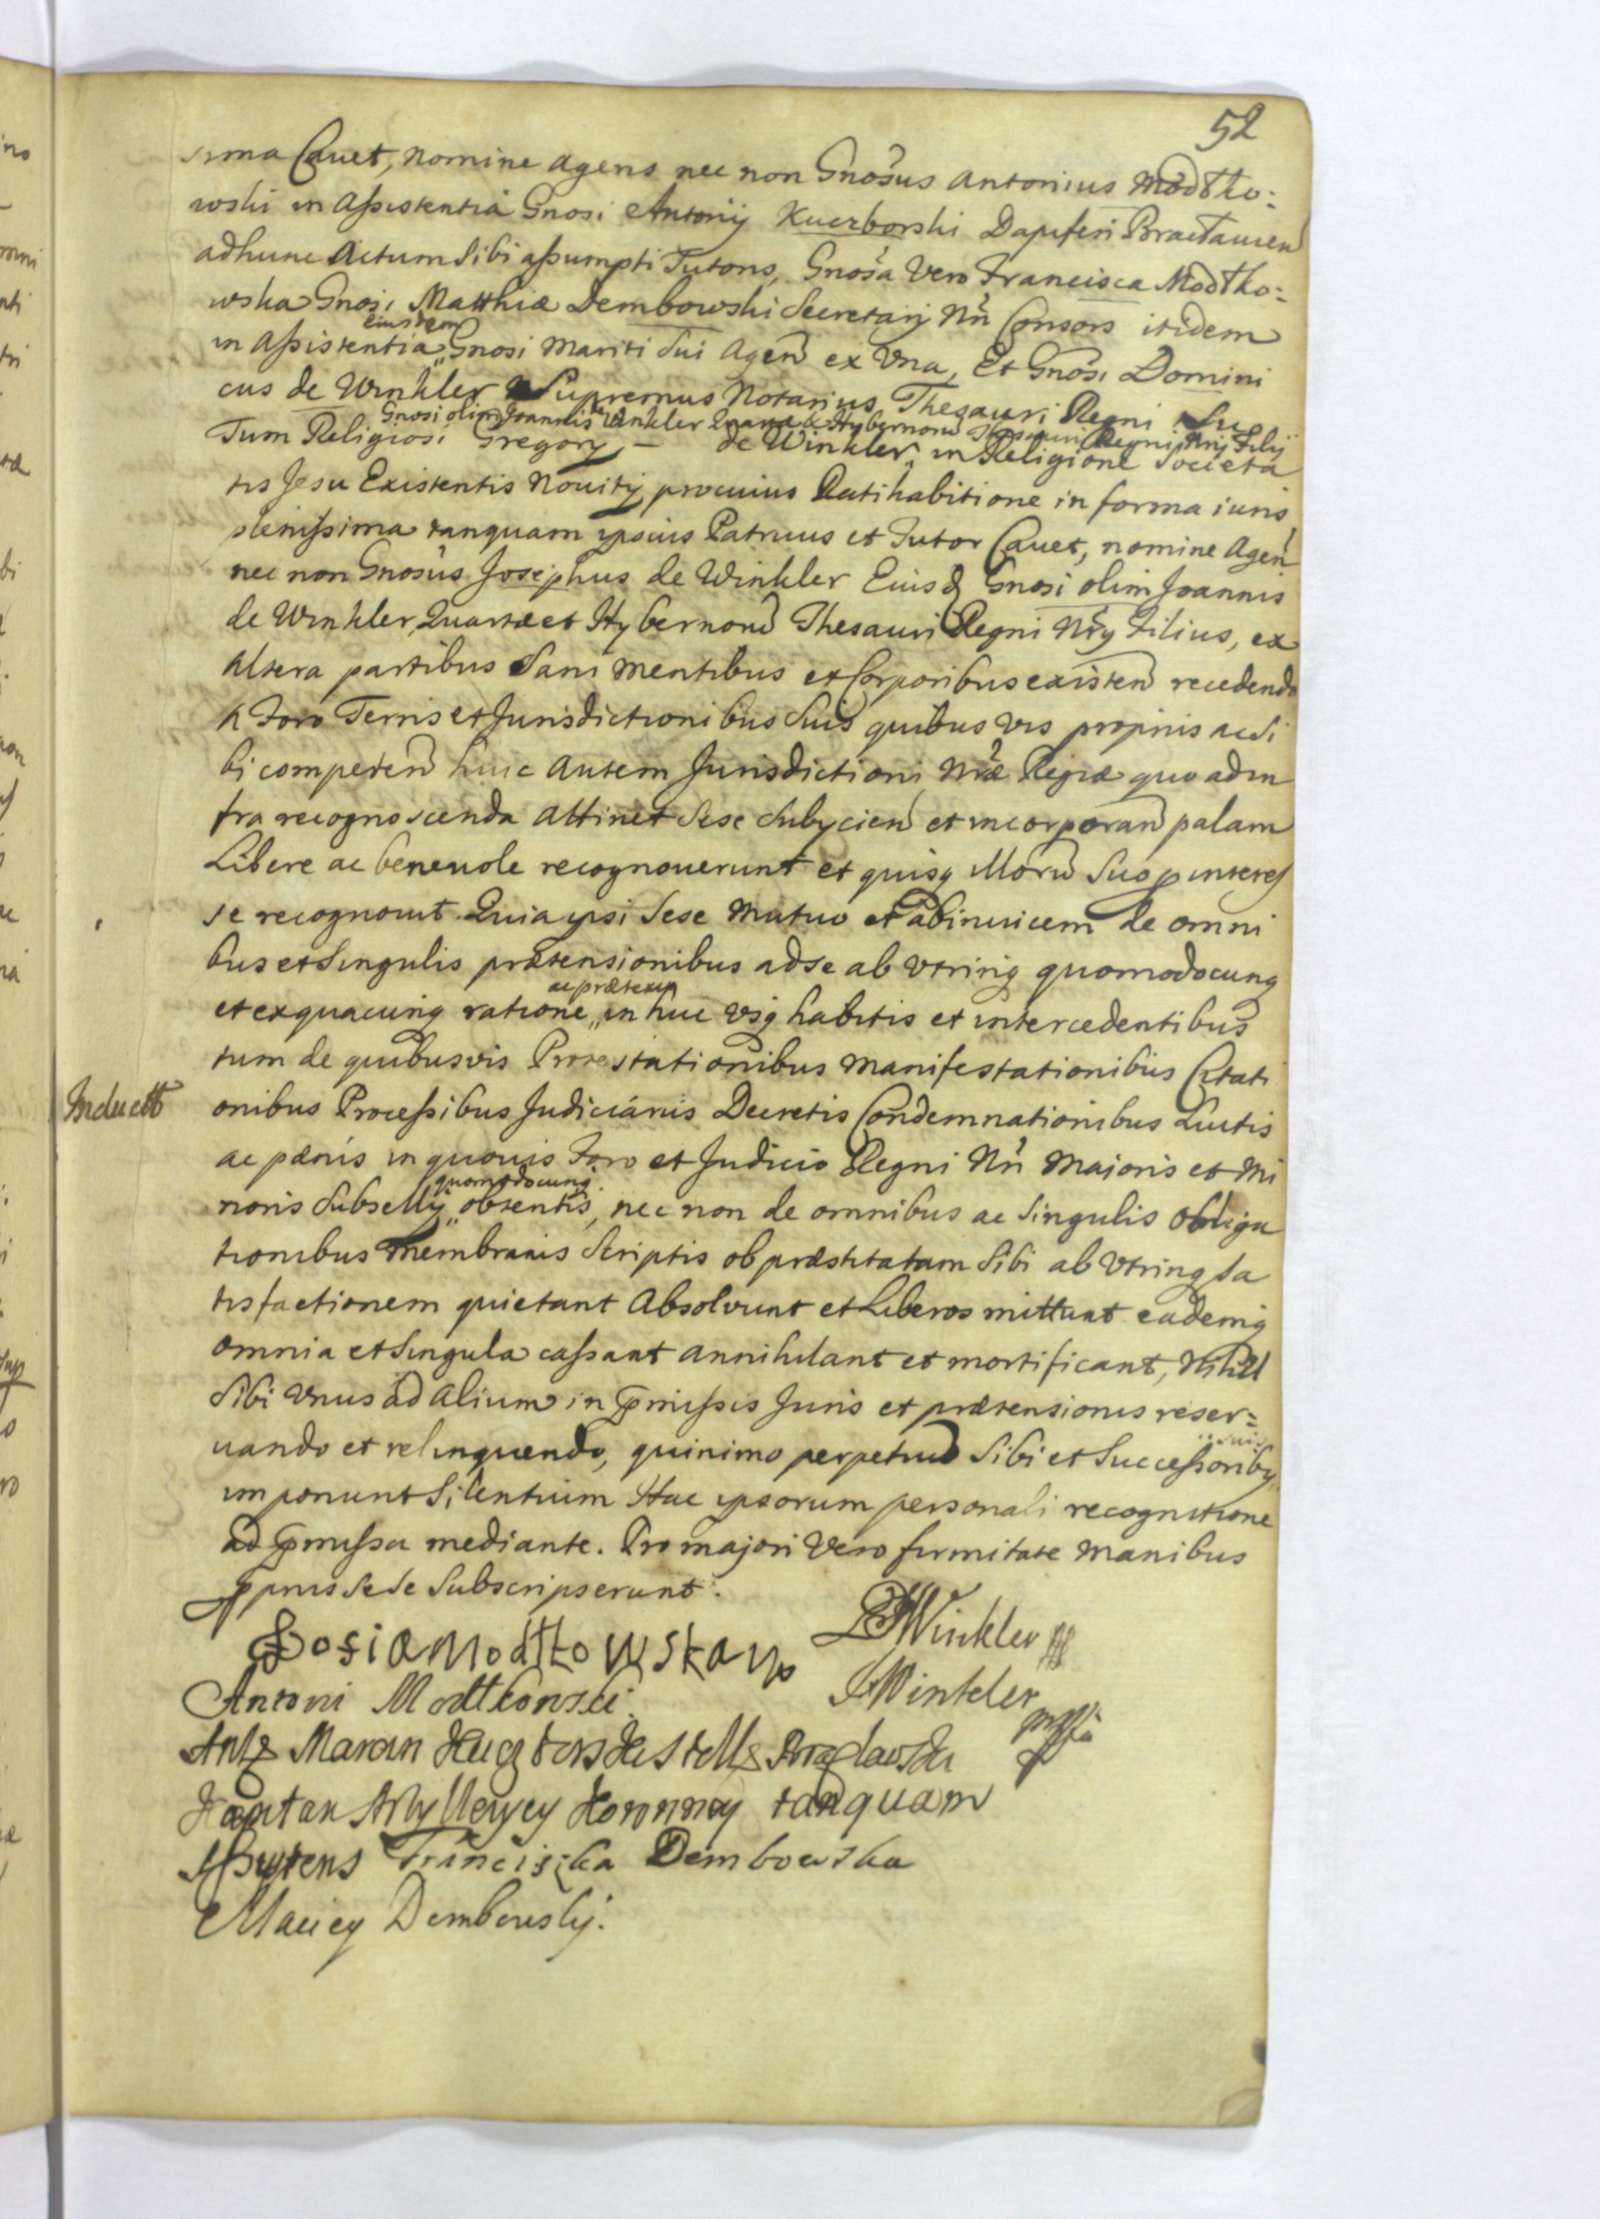 52
sima Cauet, nomine agens nec non Gnosus Antonius Modtko=
wski in Assistentia Gnosi Antonij Kuczborski Dapiferi Braclavien
adhunc Actum Sibi assumpti Tutoris, Gnosa Vero Francisca Modtko=
wska Gnosi Matthiæ Dembowski Secretarij Nri Consors itidem
in Assistentia eiusdem Gnosi Mariti Sui Agen ex Vna, Et Gnosi Domini
cus de Winkler Supremus Notarius Thesauri Regni Suo
Gnosi olim Joannis de Winkler Quartæ & Hybernorum Thesauri Regni Nrij Filij
Tum Religiosi Gregorij de Winkler, in Religione Societa
tis Jesu Existentis Nouitij, pro cuius Ratihabitione in forma iuris
plenissima tanquam ipsius Patruus et Tutor Cauet, nomine Agen
nec non Gnosus Josephus de Winkler Eiusd Gnosi olim Joannis
de Winkler, Quartæ et Hybernorum Thesauri Regni Nrij Filius, ex
Altera partibus Sani Mentibus et Corporibus existen recedendo
A Foro Terris et Jurisdictionibus Suis quibus vis proprijs ac Si
bi competen huic autem Jurisdictioni Nræ Regiæ quo ad in
fra recognoscenda attinet Sese Subijcien et incorporan palam
Libere ac beneuole recognouerunt et quisq Illorum Suo p interes
se recognouit. Quia ipsi Sese Mutuo et abinuicem de omni
bus et Singulis prætensionibus ad Se ab Vtrinq quomodocunq
et ex quacunq ratione ac prætextu in huc Vsq habitis et intercedentibus
tum de quibusvis Protestationibus Manifestationibus Citati
Induct
onibus Processibus Judiciarijs Decretis Condemnationibus Luitis
ac pænis in quouis Foro et Judicio Regni Nri Majoris et Mi
noris Subsellij quomodocunq obtentis, nec non de omnibus ac Singulis Obliga
tionibus Membranis Scriptis ob præstitatam Sibi ab Vtrinq Sa
tisfactionem quietant Absolvunt et Liberos mittunt eademq
Omnia et Singula cassant Annihilant et mortificant, Nihil
Sibi Vnus ad Alium in præmissis Juris et prætensionis reser=
uando et relinquendo, quinimo perpetuum Sibi et Successoribus suis
imponunt Silentium Hac ipsorum personali recognitione
ad præmissa mediante. Pro majori Vero firmitate Manibus
pprijs Sese Subscripserunt.
Zofia Modtkowska
D Winkler
Antoni Modtkowski
J Winkler
Marcin Kuczborski Braclawski
Kapitan Artylleryey Koronney tanquam
Assystens Franciszka Dembowska
Maciey Dembowskij.